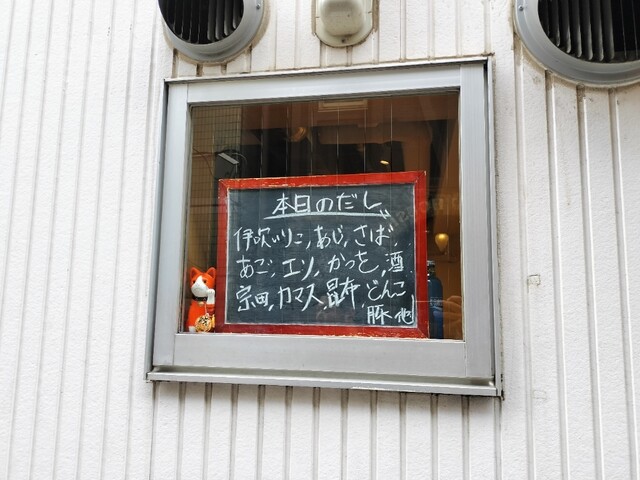 本日のだし
伊吹いりこ,あじ,さば,
あご,エソ,かつを,酒
宗田,カマス,昆布,どんこ
豚 他